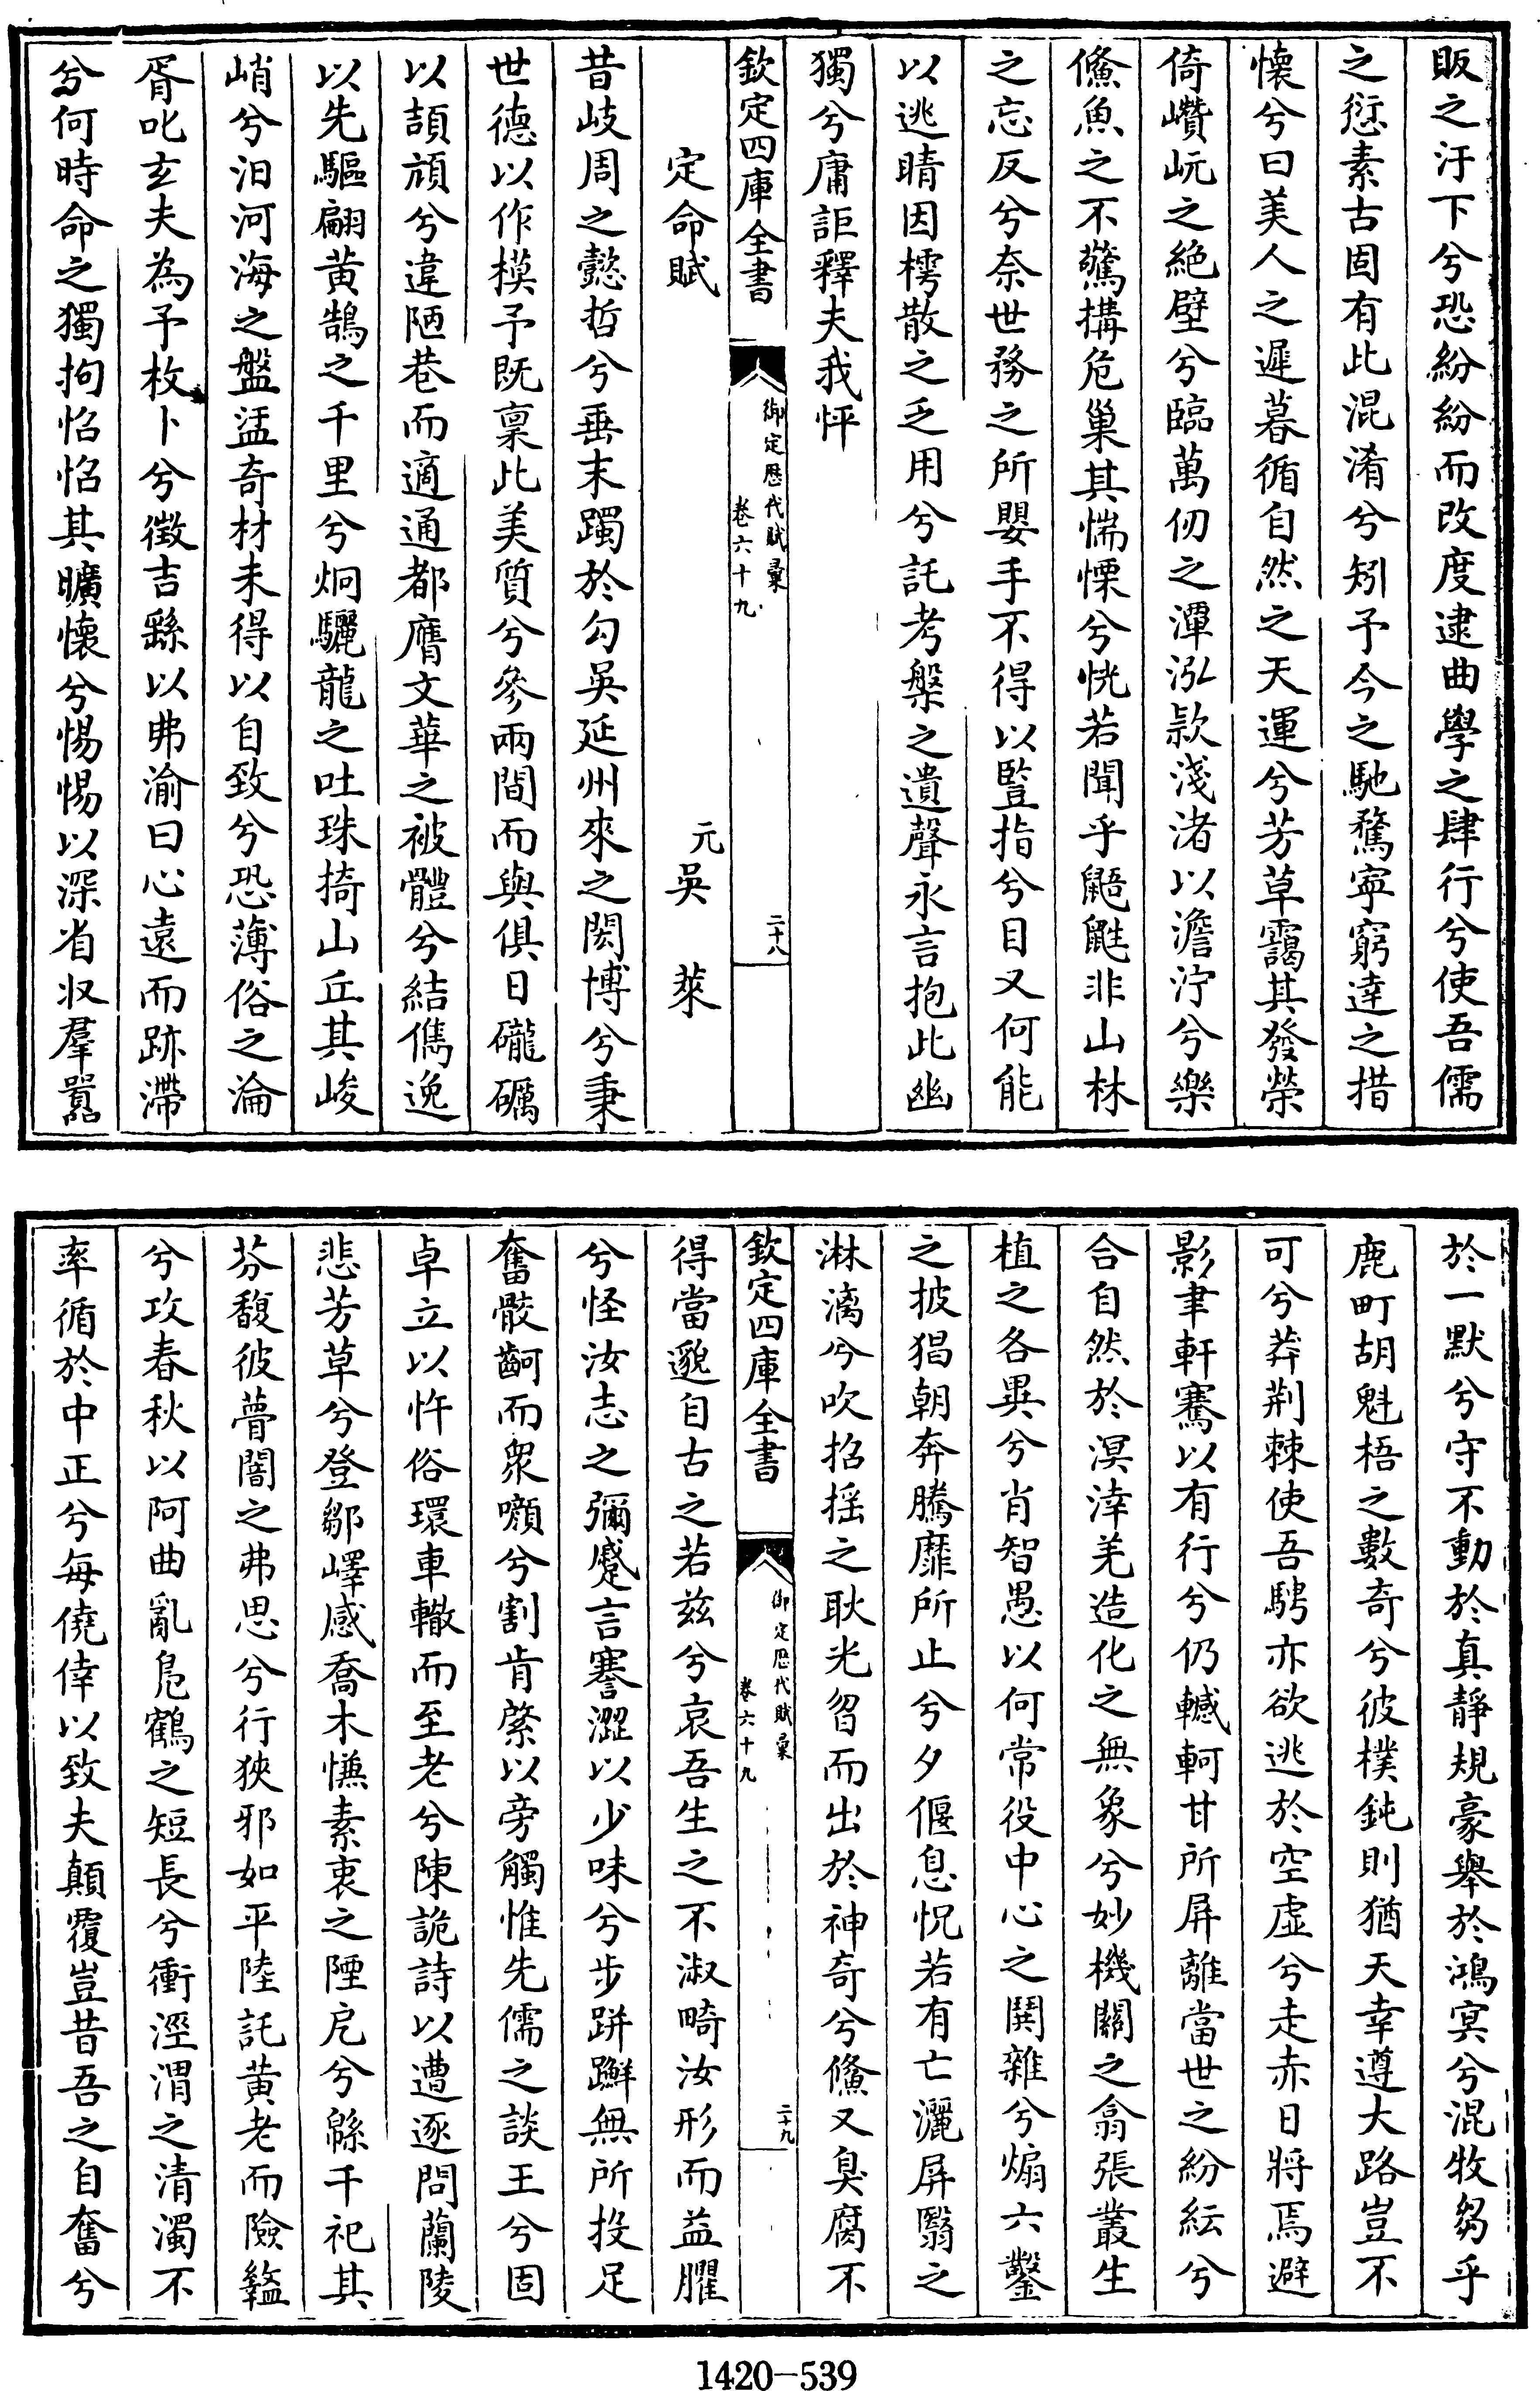 販之汙下兮恐紛紛而改度逮曲學之肆行兮使吾儒
之愆素古固有此混淆兮矧予今之馳騖寧窮達之措
懷兮曰美人之遲暮循自然之天運兮芳草靄其發榮
倚巑岏之絶壁兮臨萬仞之潭泓歘淺渚以澹泞兮樂
鯈魚之不驚構危巢其惴慄兮恍若聞乎鼯鼪非山林
之忘反兮奈世務之所嬰手不得以豎指兮目又何能
以逃睛因樗散之乏用兮託考槃之遺聲永言抱此幽
獨兮庸詎釋夫我怦
欽定四庫全書
御定歴代賦彙
卷六十九
二十八
定命賦
元吳 萊
昔岐周之懿哲兮垂末躅於勾吳延州來之閎博兮秉
世德以作模予既稟此美質兮參兩間而與俱日礲礪
以頡頏兮違陋巷而適通都膺文華之被體兮結儁逸
以先驅翩黃鵠之千里兮炯驪龍之吐珠掎山丘其峻
峭兮汨河海之盤盓奇材未得以自致兮恐薄俗之淪
胥叱玄夫為予枚卜兮徵吉繇以弗渝曰心遠而跡滯
兮何時命之獨拘惂惂其曠懷兮惕惕以深省収羣囂
於一默兮守不動於真靜規豪舉於鴻㝠兮混牧芻乎
鹿町胡魁梧之數奇兮彼樸鈍則猶天幸遵大路豈不
可兮莽荆棘使吾騁亦欲逃於空虛兮走赤日將焉避
影聿軒騫以有行兮仍轗軻甘所屏離當世之紛紜兮
合自然於溟涬羌造化之無象兮妙機關之翕張叢生
植之各異兮肖智愚以何常役中心之鬬雜兮煽六鑿
之披猖朝奔騰靡所止兮夕偃息怳若有亡灑屏翳之
淋漓兮吹招搖之耿光曶而出於神奇兮鯈又臭腐不
欽定四庫全書
御定歴代賦彙
卷六十九
二十九
得當邈自古之若兹兮哀吾生之不淑畸汝形而益臞
兮怪汝志之彌蹙言謇澀以少味兮步跰躃無所投足
奮骰齣而衆嚬兮割肯綮以旁觸惟先儒之談王兮固
卓立以忤俗環車轍而至老兮陳詭詩以遭逐問蘭陵
悲芳草兮登鄒嶧感喬木慊素衷之陻戹兮緜千祀其
芬馥彼瞢闇之弗思兮行狹邪如平陸託黃老而險𧥄
兮攻春秋以阿曲亂鳬鶴之短長兮衝涇渭之清濁不
率循於中正兮每僥倖以致夫顛覆豈昔吾之自奮兮
1420-539